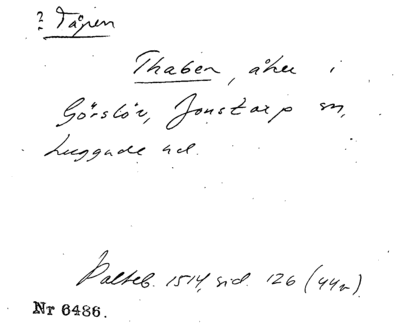 ? Tåpen
Thaben, åker i
Görslöv, Jonstorp sn,
Luggude hd.
Palteb. 1514, sid. 126 (44r).
Nr 6486.